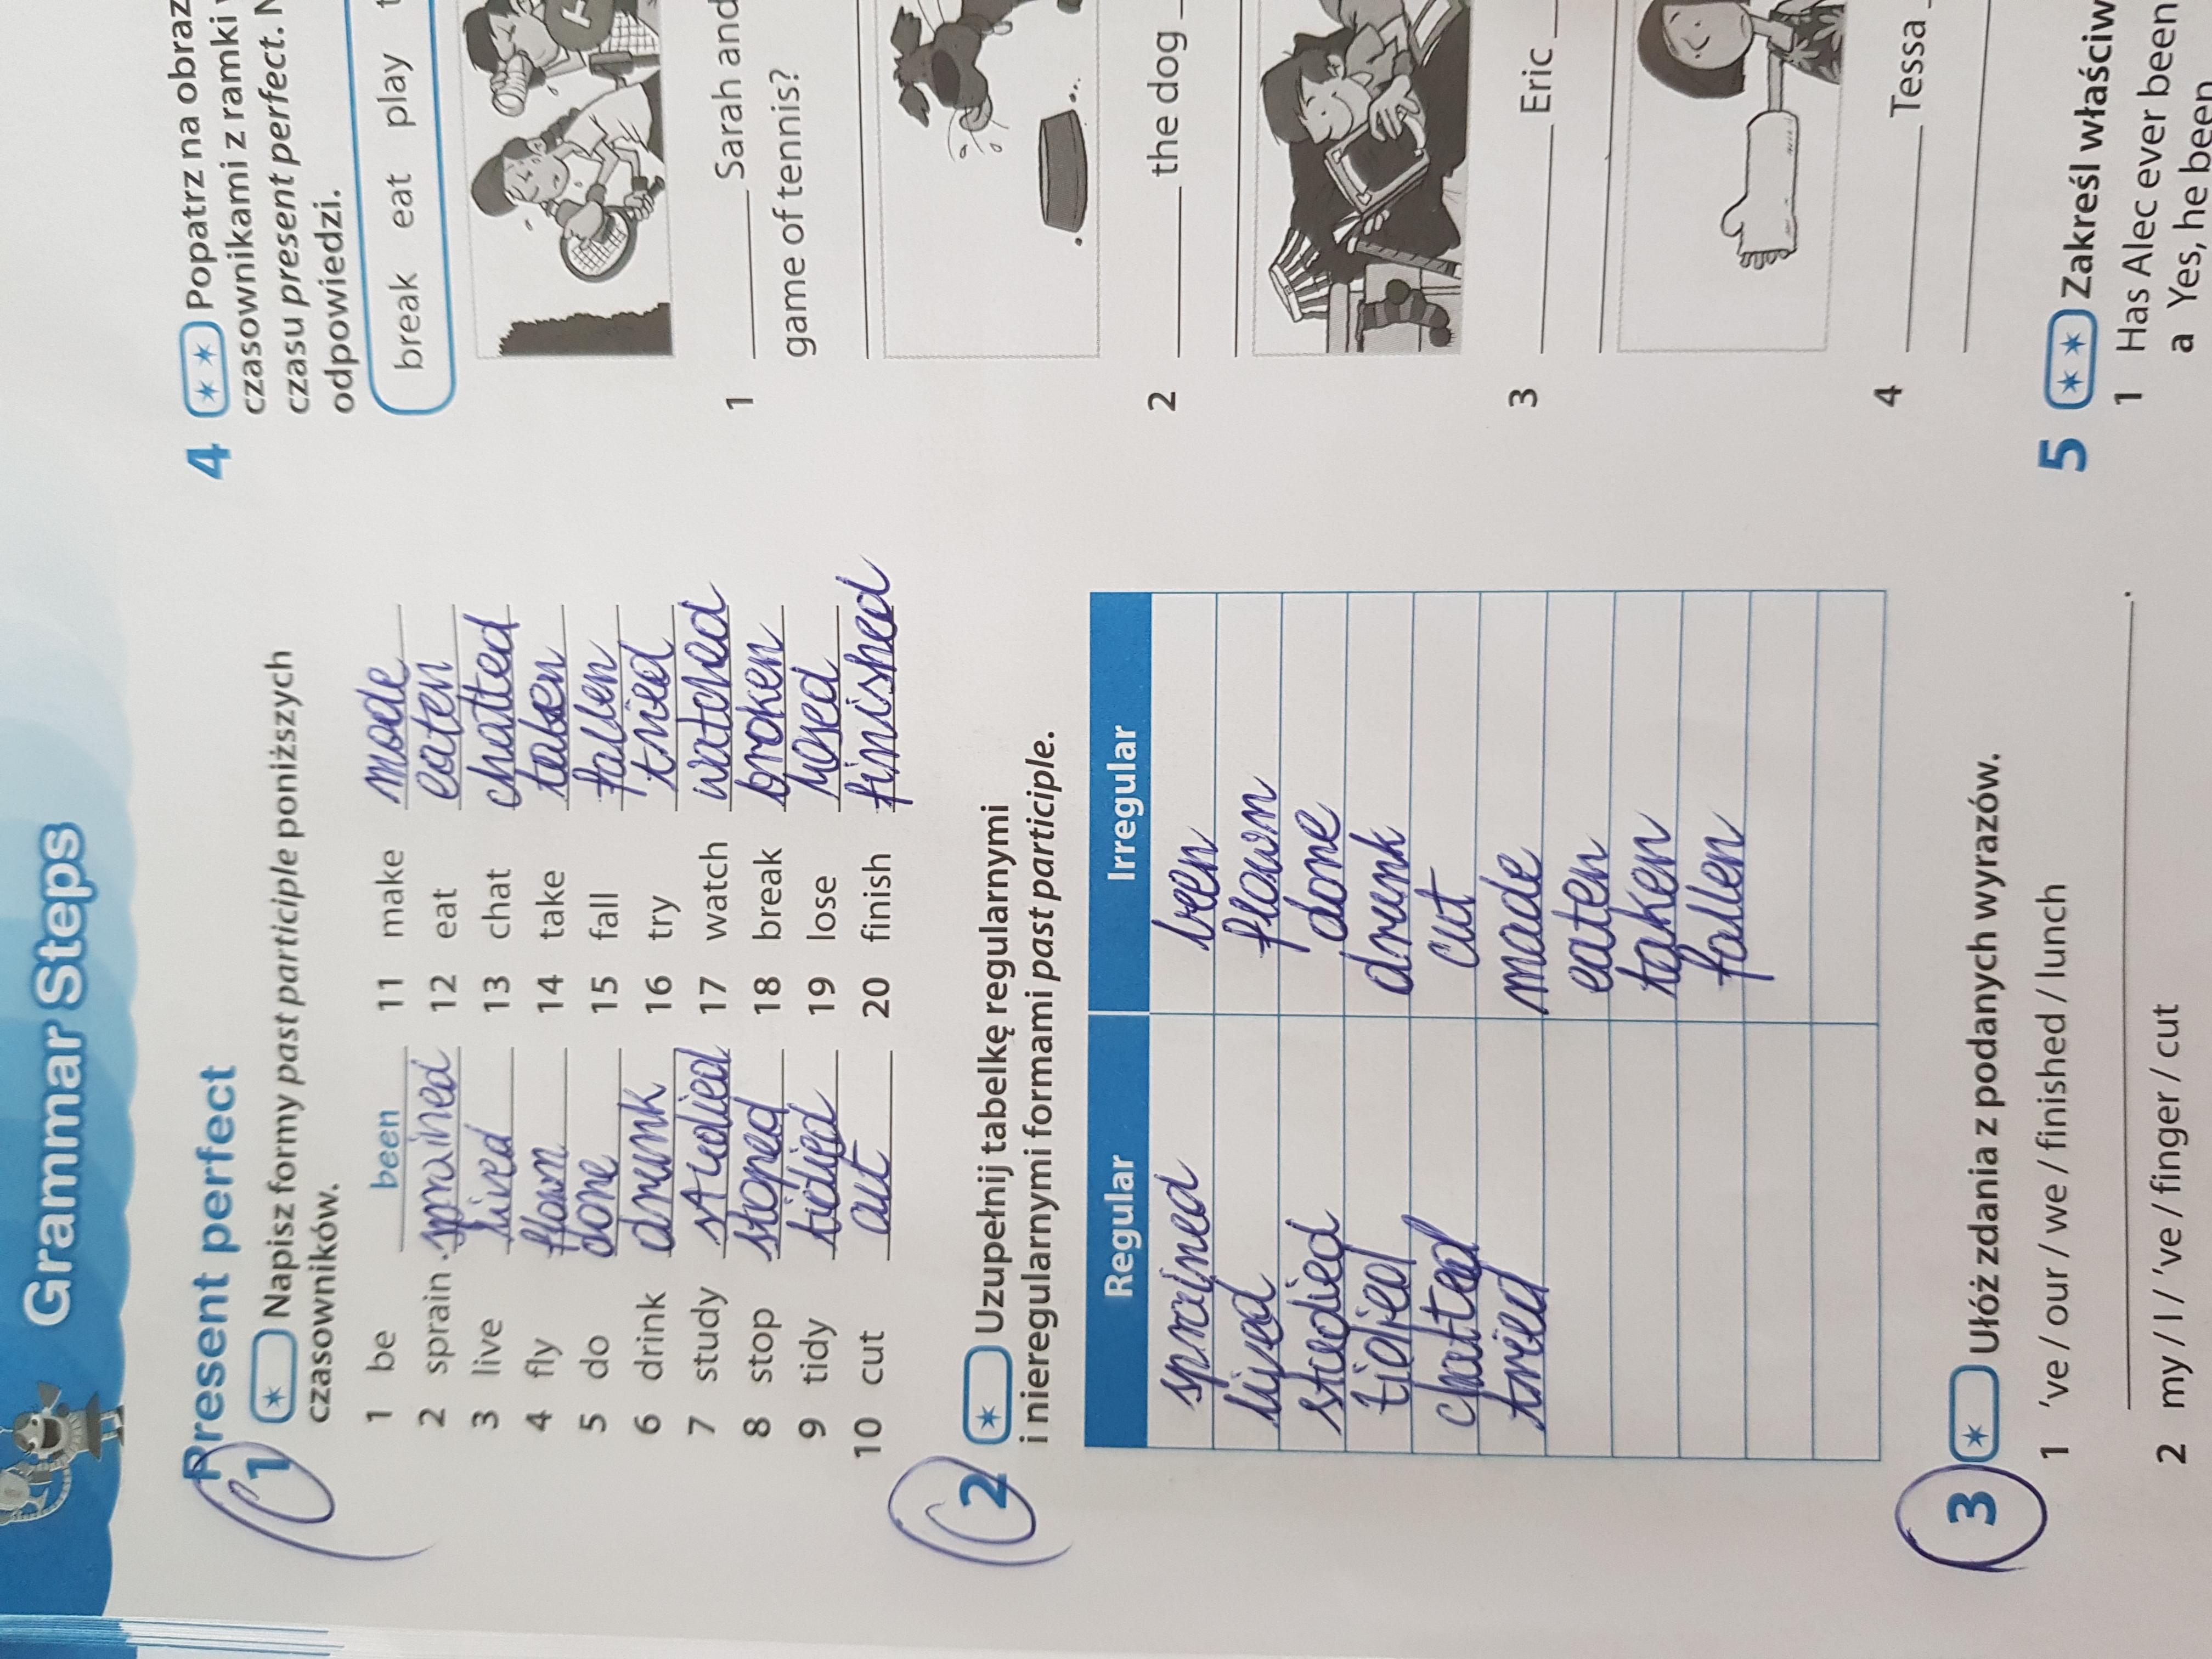 Grammar Steps
Present perfect
1 * Napisz formy past participle poniższych
czasowników.
1 be been
2 sprain sprained
3 live lived
4 fly flown
5 do done
6 drink drunk
7 study studied
8 stop stoped
9 tidy tidied
10 cut cut
11 make made
12 eat eaten
13 chat chatted
14 take taken
15 fall fallen
16 try tried
17 watch watched
18 break broken
19 lose losed
20 finish finished
2 * Uzupełnij tabelkę regularnymi
i nieregularnymi formami past participle.
Regular Irregular
sprained been
lived flown
studied done
tidied drunk
chatted cut
tried made
eaten
taken
fallen
3 * Ułóż zdania z podanych wyrazów.
1 've / our / we / finished / lunch
.
2 my / I / 've / finger / cut
4 * * Popatrz na obraz
czasownikami z ramki
czasu present perfect. N
odpowiedzi.
break eat play t
1 Sarah and
game of tennis?
2 the dog
3 Eric
4 Tessa
5 * * Zakreśl właściw
1 Has Alec ever been
a Yes, he been